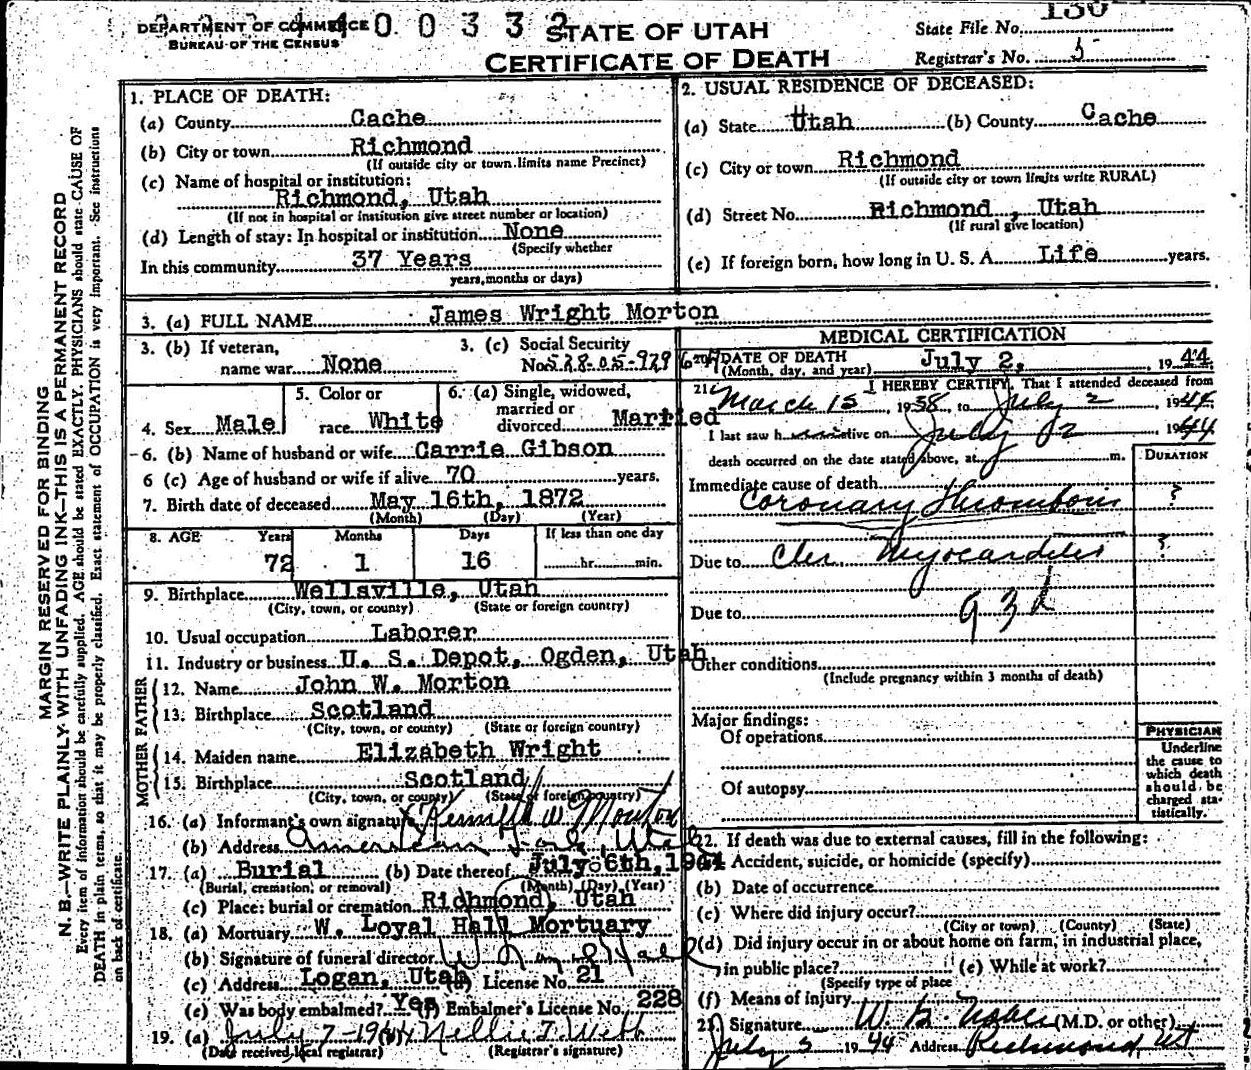 DEPARTMENT OF COMMERCE
BUREAU OF THE CENSUS
0 0 3 3 2
STATE OF UTAH
CERTIFICATE OF DEATH
State File No. 130
Registrar's No. 5
MARGIN RESERVED FOR BINDING
N. B.—WRITE PLAINLY WITH UNFADING INK—THIS IS A PERMANENT RECORD
Every item of information should be carefully supplied. AGE should be stated EXACTLY. PHYSICIANS should state CAUSE OF
DEATH in plain terms, so that it may be properly classified. Exact statement of OCCUPATION is very important. See instructions
on back of certificate.
1. PLACE OF DEATH:
(a) County Cache
(b) City or town Richmond
(If outside city or town limits name Precinct)
(c) Name of hospital or institution:
Richmond, Utah
(If not in hospital or institution give street number or location)
(d) Length of stay: In hospital or institution None
(Specify whether
In this community 37 Years
years, months or days)
2. USUAL RESIDENCE OF DECEASED:
(a) State Utah (b) County Cache
(c) City or town Richmond
(If outside city or town limits write RURAL)
(d) Street No. Richmond, Utah
(If rural give location)
(e) If foreign born, how long in U. S. A. Life years.
3. (a) FULL NAME James Wright Morton
3. (b) If veteran, name war None
3. (c) Social Security No. 528-05-929
4. Sex Male
5. Color or race White
6. (a) Single, widowed, married or divorced Married
6. (b) Name of husband or wife Carrie Gibson
6 (c) Age of husband or wife if alive 70 years.
7. Birth date of deceased May 16th, 1872
(Month) (Day) (Year)
8. AGE Years Months Days If less than one day
72 1 16 hr. min.
9. Birthplace Wellsville, Utah
(City, town, or county) (State or foreign country)
10. Usual occupation Laborer
11. Industry or business U. S. Depot, Ogden, Utah
FATHER
12. Name John W. Morton
13. Birthplace Scotland
(City, town, or county) (State or foreign country)
MOTHER
14. Maiden name Elizabeth Wright
15. Birthplace Scotland
(City, town, or county) (State or foreign country)
16. (a) Informant's own signature Kenneth W Morton
(b) Address American Fork, Utah
17. (a) Burial (b) Date thereof July 6th, 1944
(Burial, cremation, or removal) (Month) (Day) (Year)
(c) Place: burial or cremation Richmond, Utah
18. (a) Mortuary W. Loyal Hall Mortuary
(b) Signature of funeral director
(c) Address Logan, Utah License No. 21
(e) Was body embalmed? Yes (f) Embalmer's License No. 228
19. (a) July 7-1944 Nellie T. Webb
(Date received, local registrar) (Registrar's signature)
MEDICAL CERTIFICATION
20. DATE OF DEATH July 2, 1944
(Month, day, and year)
21. I HEREBY CERTIFY, That I attended deceased from
March 15, 1938, to July 2 1944
I last saw h alive on July 2 1944
death occurred on the date stated above, at m.
DURATION
Immediate cause of death
Coronary Thrombosis ?
Due to Chr. Myocarditis ?
Due to 93d
Other conditions
(Include pregnancy within 3 months of death)
Major findings:
Of operations
Of autopsy
PHYSICIAN
Underline
the cause to
which death
should be
charged sta-
tistically.
22. If death was due to external causes, fill in the following:
(a) Accident, suicide, or homicide (specify)
(b) Date of occurrence
(c) Where did injury occur?
(City or town) (County) (State)
(d) Did injury occur in or about home on farm, in industrial place,
in public place? (e) While at work?
(Specify type of place
(f) Means of injury
23. Signature W. (M.D. or other)
July 5 1944 Address Richmond, Ut